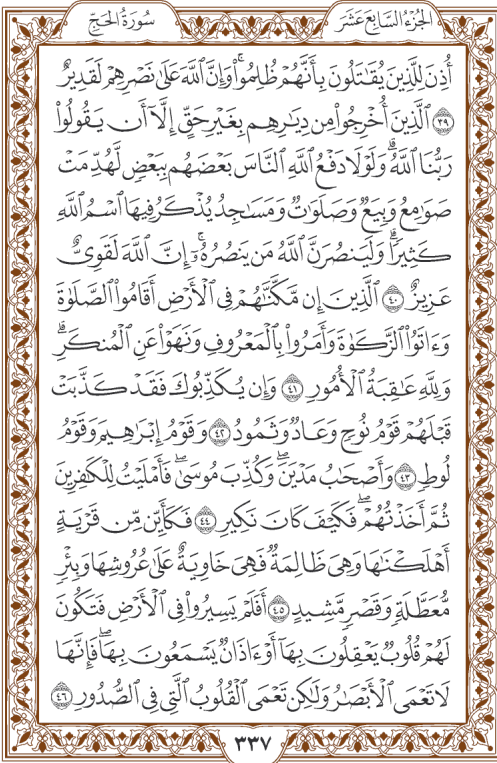 سُورَةُ الحَجِّ
الجُزْءُ السَّابِعَ عَشَرَ
أُذِنَ لِلَّذِينَ يُقَٰتَلُونَ بِأَنَّهُمْ ظُلِمُوا۟ ۚ وَإِنَّ ٱللَّهَ عَلَىٰ نَصْرِهِمْ لَقَدِيرٌ
٣٩ ٱلَّذِينَ أُخْرِجُوا۟ مِن دِيَٰرِهِم بِغَيْرِ حَقٍّ إِلَّآ أَن يَقُولُوا۟
رَبُّنَا ٱللَّهُ ۗ وَلَوْلَا دَفْعُ ٱللَّهِ ٱلنَّاسَ بَعْضَهُم بِبَعْضٍ لَّهُدِّمَتْ
صَوَٰمِعُ وَبِيَعٌ وَصَلَوَٰتٌ وَمَسَٰجِدُ يُذْكَرُ فِيهَا ٱسْمُ ٱللَّهِ
كَثِيرًا ۗ وَلَيَنصُرَنَّ ٱللَّهُ مَن يَنصُرُهُۥٓ ۗ إِنَّ ٱللَّهَ لَقَوِىٌّ
عَزِيزٌ ٤٠ ٱلَّذِينَ إِن مَّكَّنَّٰهُمْ فِى ٱلْأَرْضِ أَقَامُوا۟ ٱلصَّلَوٰةَ
وَءَاتَوُا۟ ٱلزَّكَوٰةَ وَأَمَرُوا۟ بِٱلْمَعْرُوفِ وَنَهَوْا۟ عَنِ ٱلْمُنكَرِ ۗ
وَلِلَّهِ عَٰقِبَةُ ٱلْأُمُورِ ٤١ وَإِن يُكَذِّبُوكَ فَقَدْ كَذَّبَتْ
قَبْلَهُمْ قَوْمُ نُوحٍ وَعَادٌ وَثَمُودُ ٤٢ وَقَوْمُ إِبْرَٰهِيمَ وَقَوْمُ
لُوطٍ ٤٣ وَأَصْحَٰبُ مَدْيَنَ ۖ وَكُذِّبَ مُوسَىٰ ۖ فَأَمْلَيْتُ لِلْكَٰفِرِينَ
ثُمَّ أَخَذْتُهُمْ ۖ فَكَيْفَ كَانَ نَكِيرِ ٤٤ فَكَأَيِّن مِّن قَرْيَةٍ
أَهْلَكْنَٰهَا وَهِىَ ظَالِمَةٌ فَهِىَ خَاوِيَةٌ عَلَىٰ عُرُوشِهَا وَبِئْرٍ
مُّعَطَّلَةٍ وَقَصْرٍ مَّشِيدٍ ٤٥ أَفَلَمْ يَسِيرُوا۟ فِى ٱلْأَرْضِ فَتَكُونَ
لَهُمْ قُلُوبٌ يَعْقِلُونَ بِهَآ أَوْ ءَاذَانٌ يَسْمَعُونَ بِهَا ۖ فَإِنَّهَا
لَا تَعْمَى ٱلْأَبْصَٰرُ وَلَٰكِن تَعْمَى ٱلْقُلُوبُ ٱلَّتِى فِى ٱلصُّدُورِ ٤٦
٣٣٧